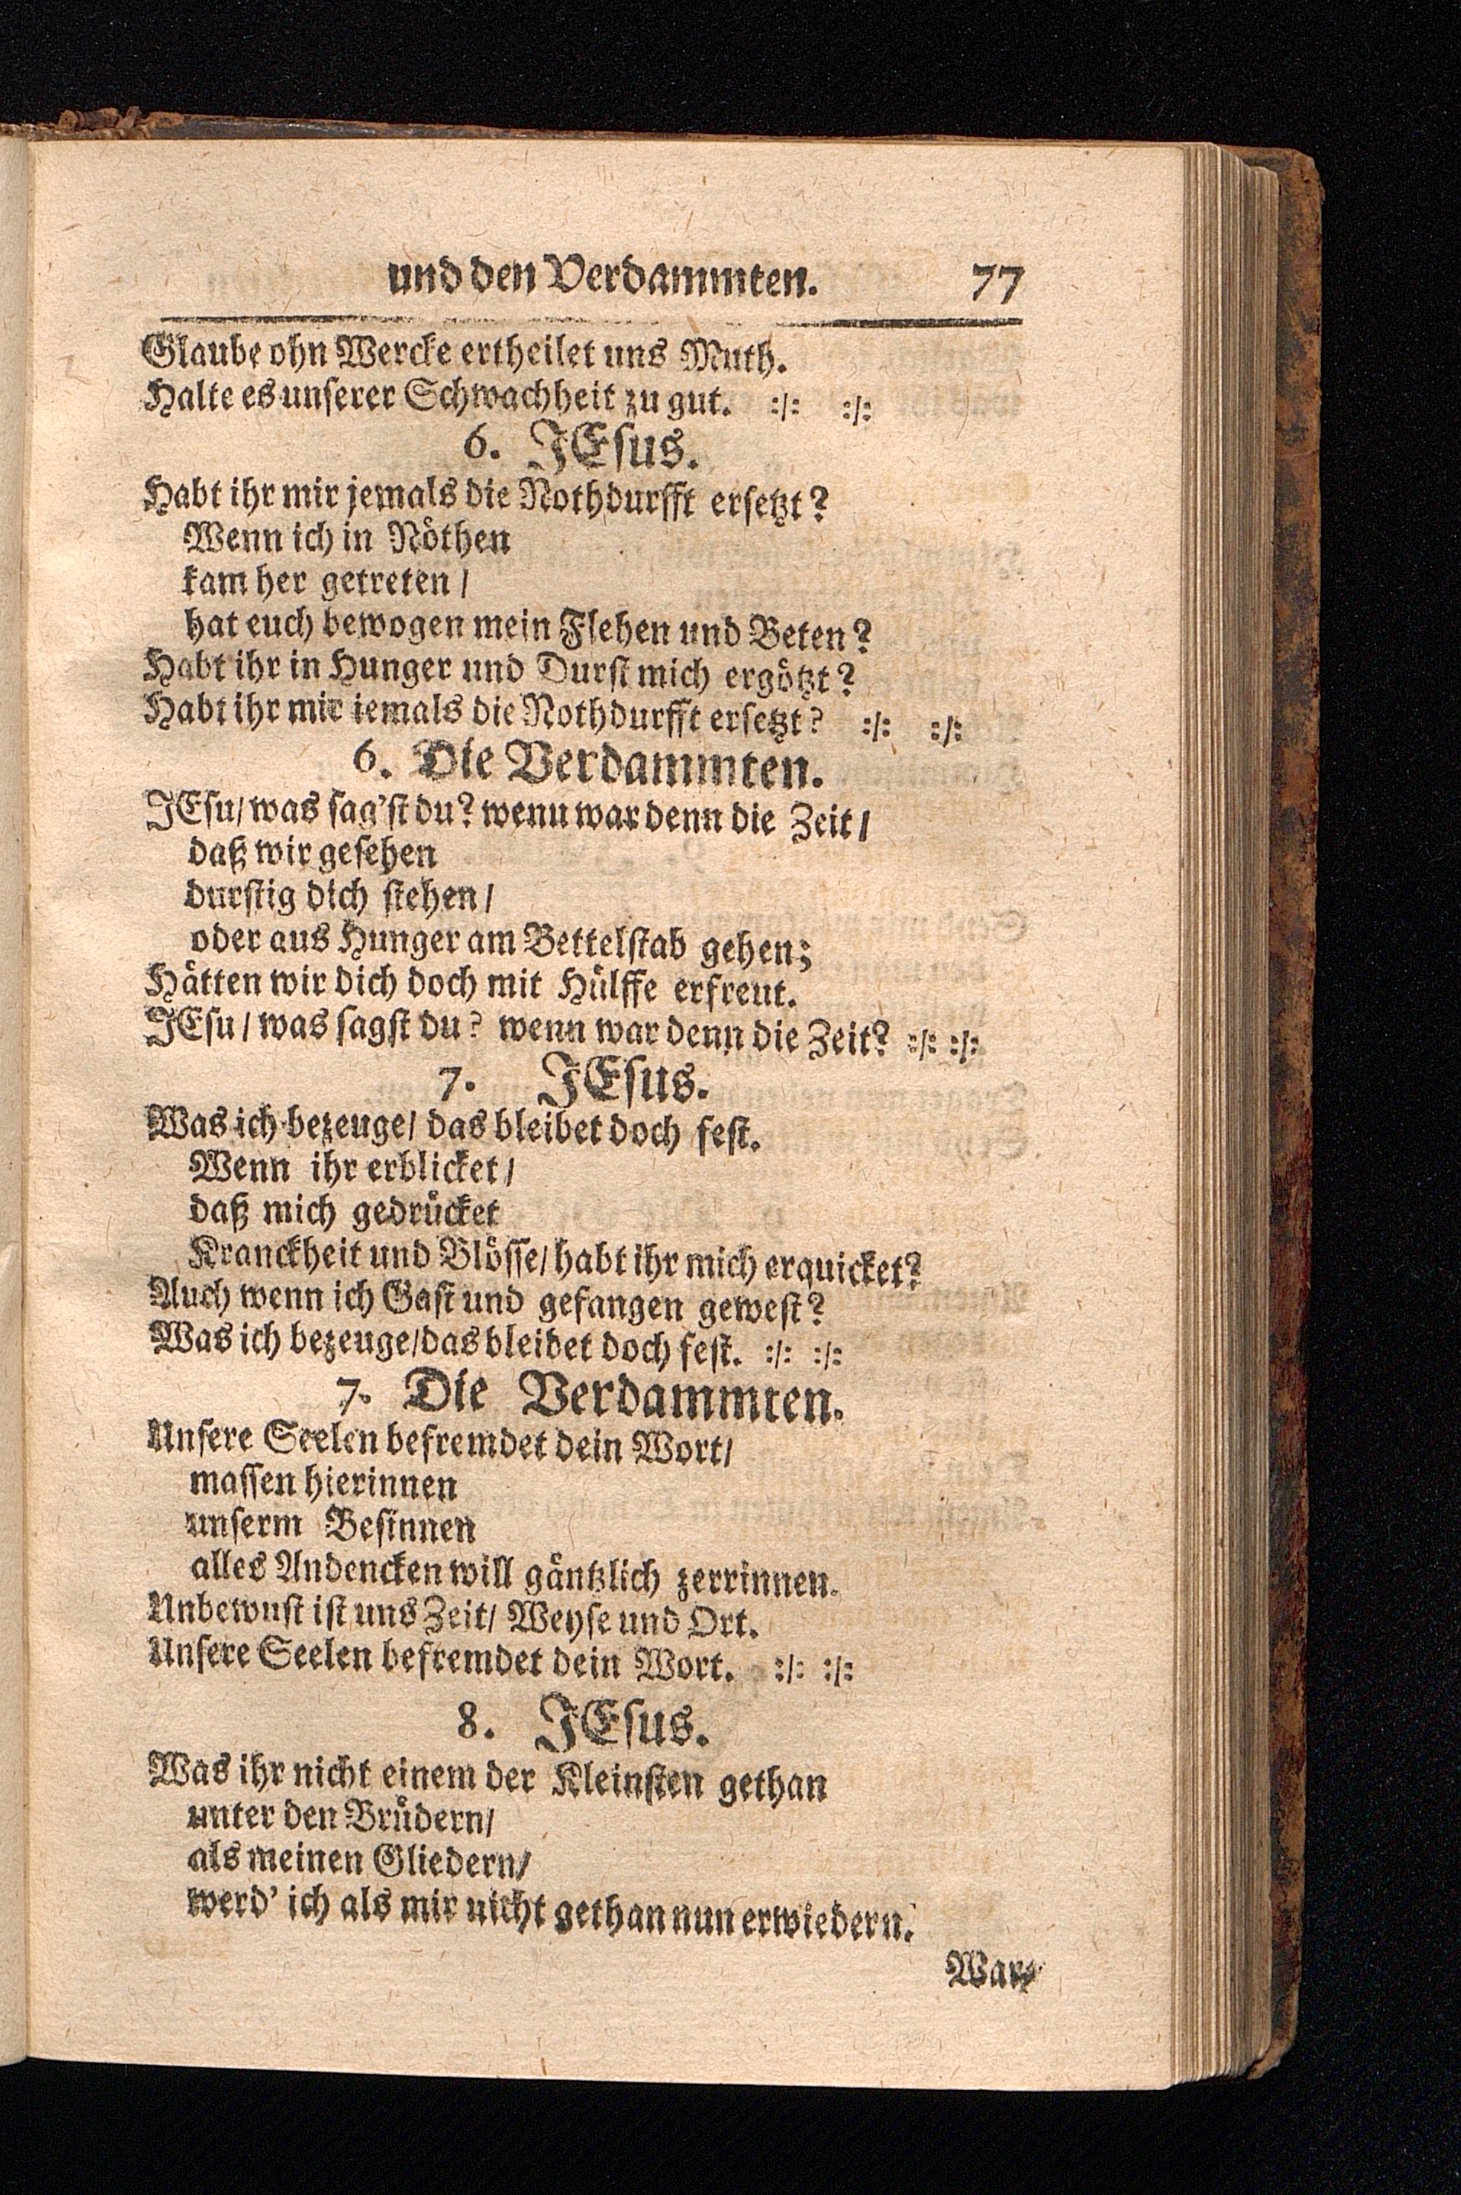 und den Verdammten. 77
Glaube ohn Wercke ertheilet uns Muth.
Halte es unserer Schwachheit zu gut. :/: :/:
6. JEsus.
Habt ihr mir jemals die Nothdurfft ersetzt?
Wenn ich in Nöthen
kam her getreten/
hat euch bewogen mein Flehen und Beten?
Habt ihr in Hunger und Durst mich ergötzt?
Habt ihr mir iemals die Nothdurfft ersetzt? :/: :/:
6. Die Verdammten.
JEsu/ was sag'st du? wenn war denn die Zeit/
daß wir gesehen
durstig dich stehen/
oder aus Hunger am Bettelstab gehen;
Hätten wir dich doch mit Hülffe erfreut.
JEsu/ was sagst du? wenn war denn die Zeit? :/: :/:
7. JEsus.
Was ich bezeuge/ das bleibet doch fest.
Wenn ihr erblicket/
daß mich gedrücket
Kranckheit und Blösse/ habt ihr mich erquicket?
Auch wenn ich Gast und gefangen gewest?
Was ich bezeuge/ das bleidet doch fest. :/: :/:
7. Die Verdammten.
Unsere Seelen befremdet dein Wort/
massen hierinnen
unserm Besinnen
alles Andencken will gäntzlich zerrinnen.
Unbewust ist uns Zeit/ Weyse und Ort.
Unsere Seelen befremdet dein Wort. :/: :/:
8. JEsus.
Was ihr nicht einem der Kleinsten gethan
unter den Brüdern/
als meinen Gliedern/
werd' ich als mir nicht gethan nun erwiedern.
War-